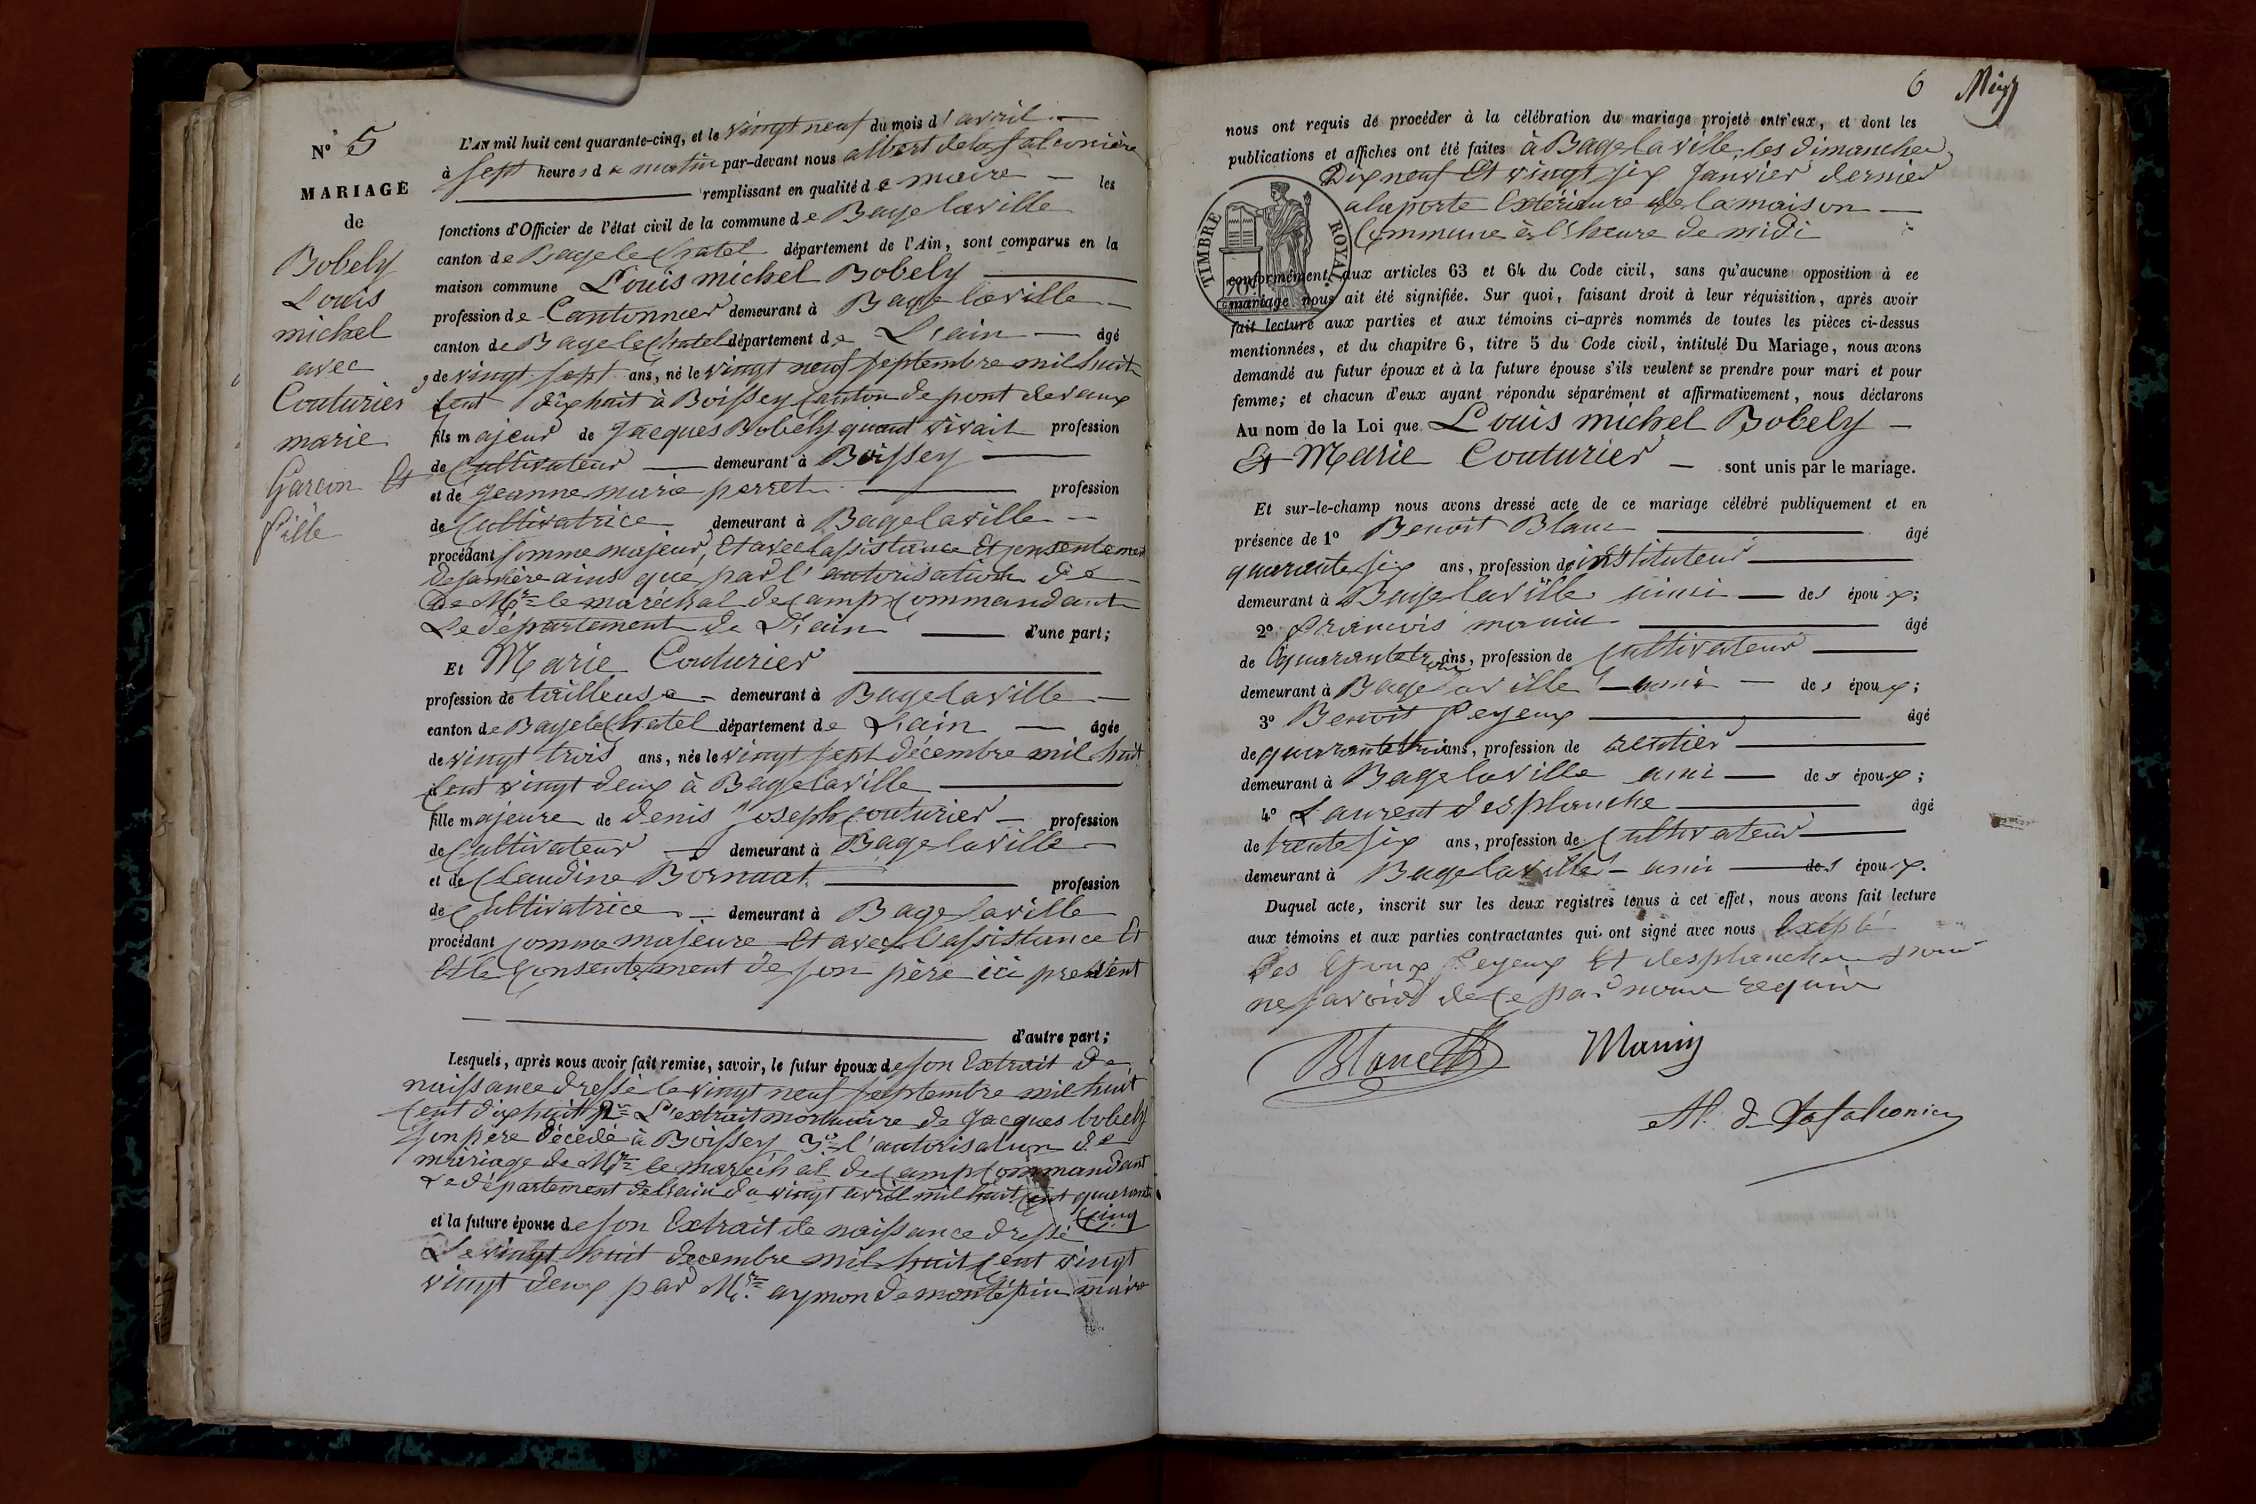 N° 5
MARIAGE
de
Bobely
Louis
michel
avec
Couturier
marie
Garcon Et
fille
L'AN mil huit cent quarante-cinq, et le vingt neuf du mois d'avril
à sept heures du matin par-devant nous albert delafalconière
remplissant en qualité de maire les
fonctions d'Officier de l'état civil de la commune de Bagelaville
canton de Bagelechatel département de l'Ain, sont comparus en la
maison commune Louis michel Bobely
profession de Cantonnier demeurant à Bagelaville
canton de Bagelechatel département de L'ain âgé
de vingt sept ans, né le vingt neuf septembre mil huit
Cent dixhuit à Boissey Canton de pont devaux
fils majeur de Jacques Bobely quand vivait profession
de Cultivateur demeurant à Boissey
et de Jeanne marie perret profession
de Cultivatrice demeurant à Bagelaville
procédant Comme majeur, Et avec lassistance Et consentement
desamère ainsi que par l'autorisation de
De Mr le maréchal de Camp Commandant
Le département de L'ain d'une part;
Et Marie Couturier
profession de tailleuse demeurant à Bagelaville
canton de Bagelechatel département de L'ain âgée
de vingt trois ans, née le vingt sept décembre mil huit
Cent vingt deux à Bagelaville
fille majeure de denis Joseph Couturier profession
de Cultivateur demeurant à Bagelaville
et de Claudine Bornuat profession
de Cultivatrice demeurant à Bagelaville
procédant Comme majeure Et avec Lassistance Et
Et le Consentement de son père ici présent
d'autre part;
Lesquels, après nous avoir fait remise, savoir, le futur époux de son Extrait de
naissance dressé le vingt neuf septembre mil huit
Cent dixhuit 2° L'extrait mortuaire de Jacques bobely
son père décédé à Boissey 3° l'autorisation de
mariage de Mr le maréchal de Camp Commandant
Le département de Lain du vingt avril mil huit Cent quarante
Cinq
et la future épouse de son Extrait de naissance dressé
Le vingt huit decembre mil huit Cent vingt
vingt deux par Mr. aymon de montépin maire
6
nous ont requis de procéder à la célébration du mariage projeté entr'eux, et dont les
publications et affiches ont été faites à Bagelaville, les dimanches
Dix neuf Et vingt six Janvier dernier
alaporte Extérieure de lamaison
Commune à l'heure de midi
TIMBRE ROYAL
conformément aux articles 63 et 64 du Code civil, sans qu'aucune opposition à ce
mariage nous ait été signifiée. Sur quoi, faisant droit à leur réquisition, après avoir
fait lecture aux parties et aux témoins ci-après nommés de toutes les pièces ci-dessus
mentionnées, et du chapitre 6, titre 5 du Code civil, intitulé Du Mariage, nous avons
demandé au futur époux et à la future épouse s'ils veulent se prendre pour mari et pour
femme; et chacun d'eux ayant répondu séparément et affirmativement, nous déclarons
Au nom de la Loi que Louis michel Bobely
Et Marie Couturier sont unis par le mariage.
Et sur-le-champ nous avons dressé acte de ce mariage célébré publiquement et en
présence de 1° Benoit Blanc âgé
quarante six ans, profession de instituteur
demeurant à Bagelaville ami des époux;
2° francois manin âgé
de quarante trois ans, profession de Cultivateur
demeurant à Bagelaville ami des époux;
3° Benoit Peyeux âgé
de quarante trois ans, profession de rentier
demeurant à Bagelaville ami des époux;
4° Laurent desplanche âgé
de trente six ans, profession de Cultivateur
demeurant à Bagelaville ami des époux.
Duquel acte, inscrit sur les deux registres tenus à cet effet, nous avons fait lecture
aux témoins et aux parties contractantes qui ont signé avec nous Exepté
Les Epoux Peyeux Et desplanche pour
ne savoir de Ce par nous requis
Blanc Manin
Al. de Lafalconière